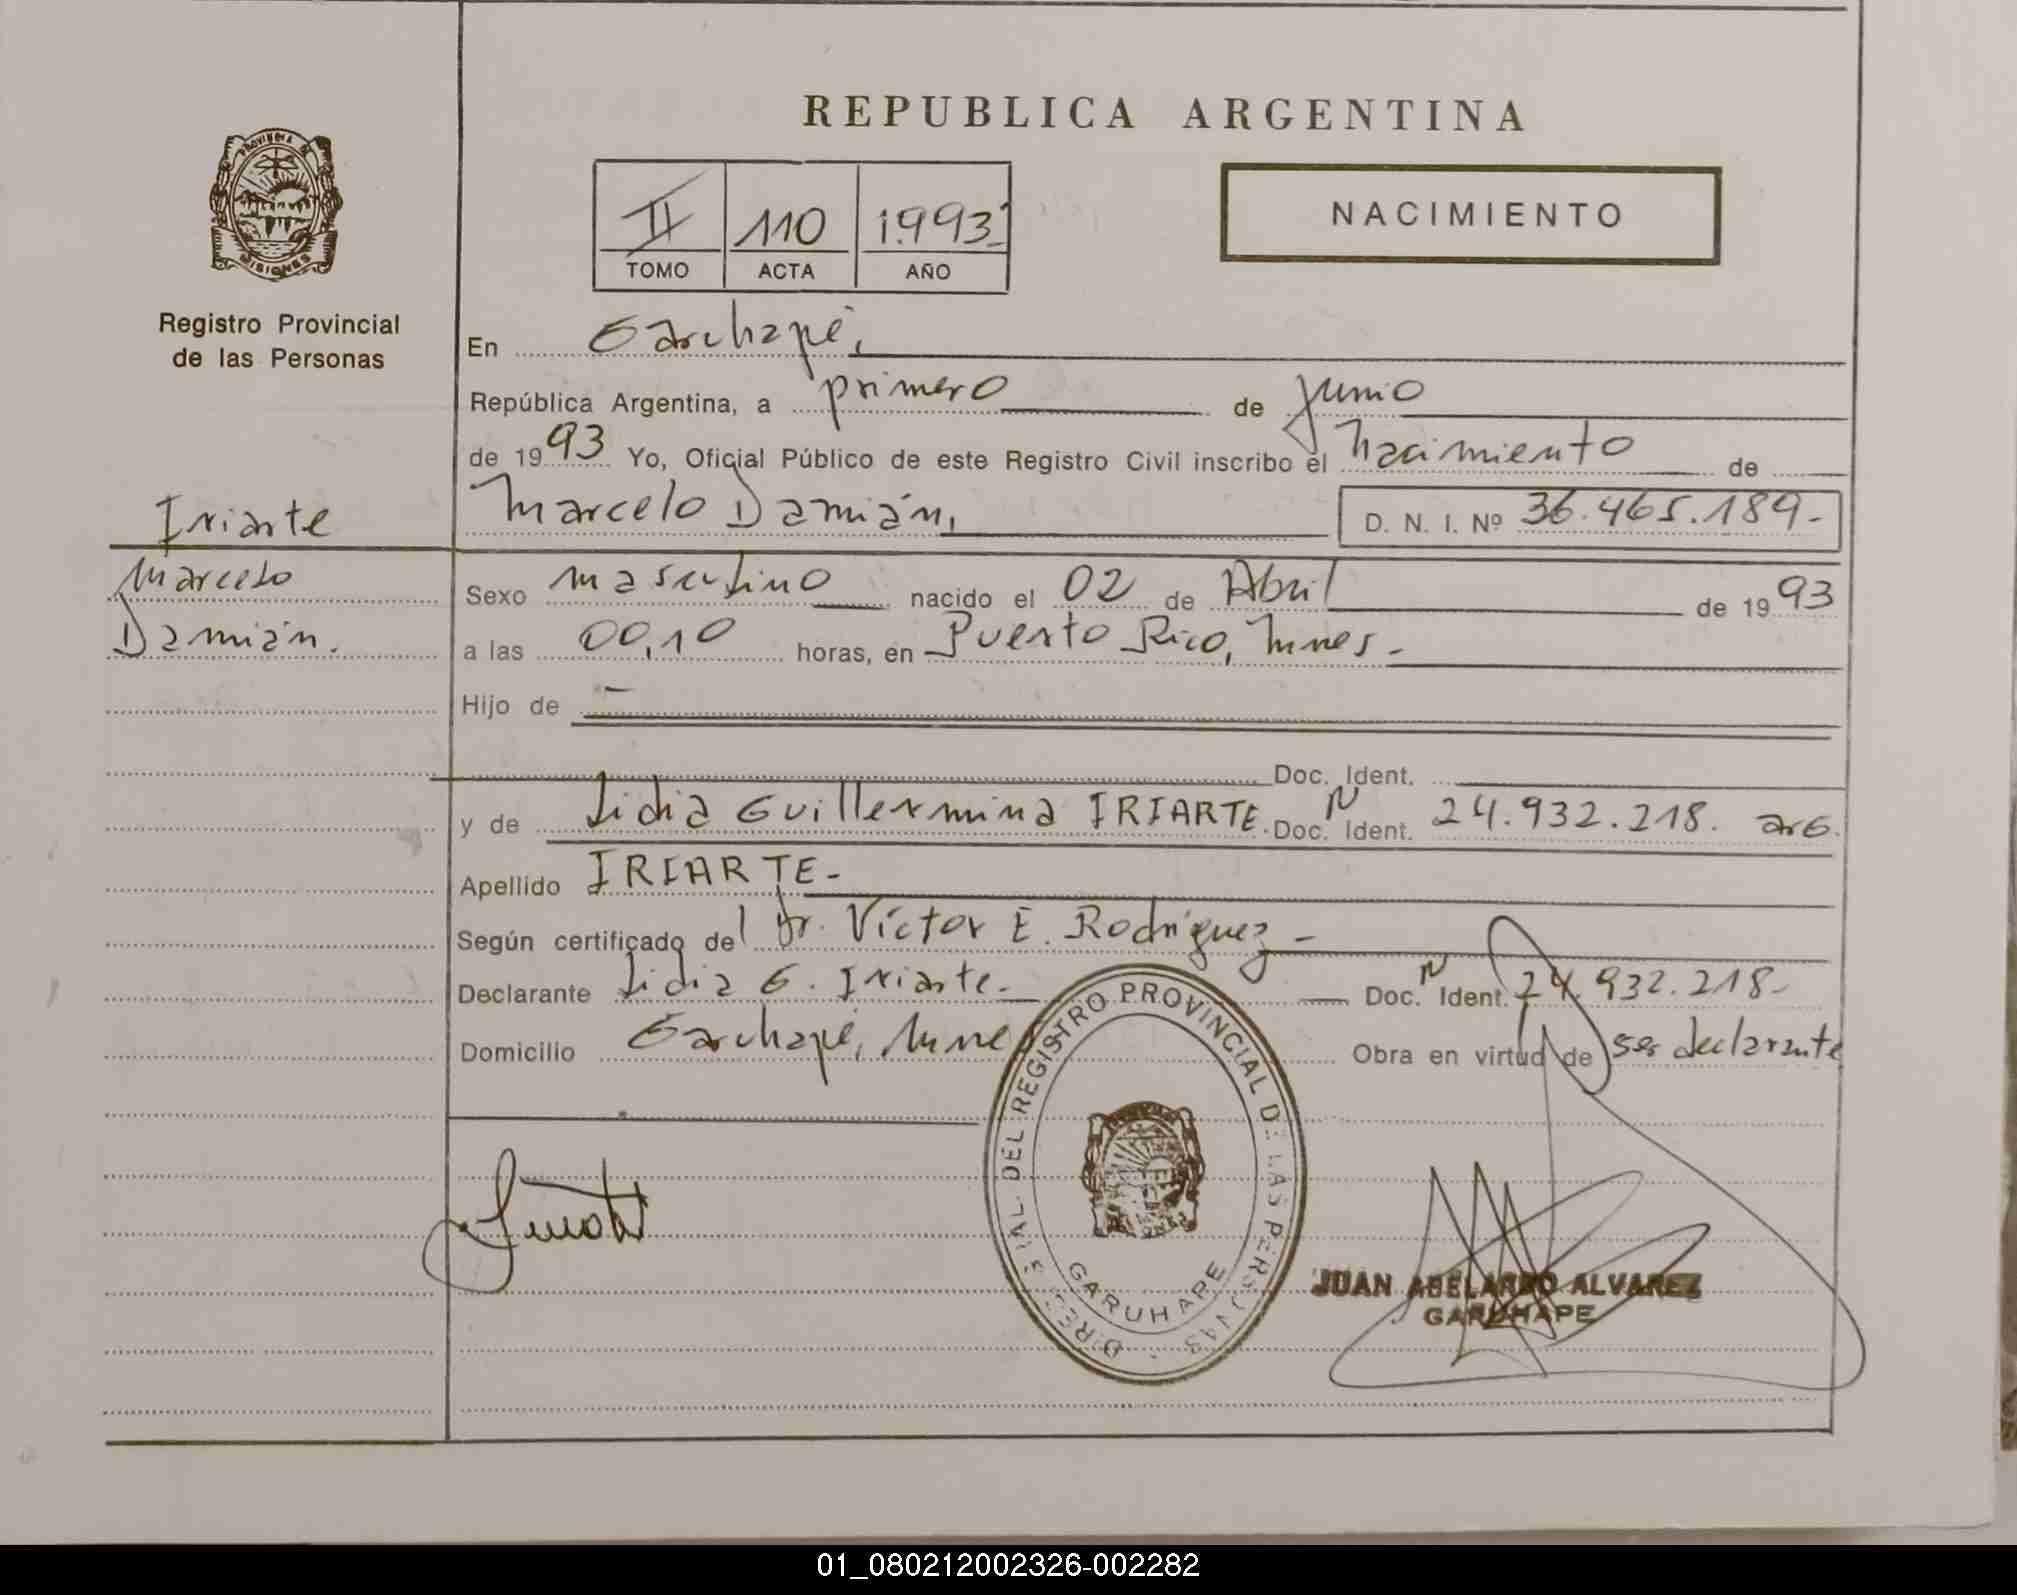 REPUBLICA ARGENTINA
PROVINCIA DE
MISIONES
Registro Provincial
de las Personas
II 110 1.993
TOMO ACTA AÑO
NACIMIENTO
En Garuhapé,
República Argentina, a primero de junio
de 1993 Yo, Oficial Público de este Registro Civil inscribo el Nacimiento de
Marcelo Damián, D. N. I. Nº 36.465.189.-
Iriarte
Marcelo
Damián.
Sexo masculino nacido el 02 de Abril de 1993
a las 00,10 horas, en Puerto Rico, Mnes.-
Hijo de -
Doc. Ident.
y de Lidia Guillermina IRIARTE. Doc. N Ident. 24.932.218. arG.
Apellido IRIARTE-
Según certificado del Dr. Víctor E. Rodríguez-
Declarante Lidia G. Iriarte.- Doc. N Ident. 24.932.218-
Domicilio Garuhapé, Mnes Obra en virtud de ser declarante
DEL REGISTRO PROVINCIAL DE LAS PERSONAS
GARUHAPE
JUAN ABELARDO ALVAREZ
GARUHAPE
01_080212002326-002282